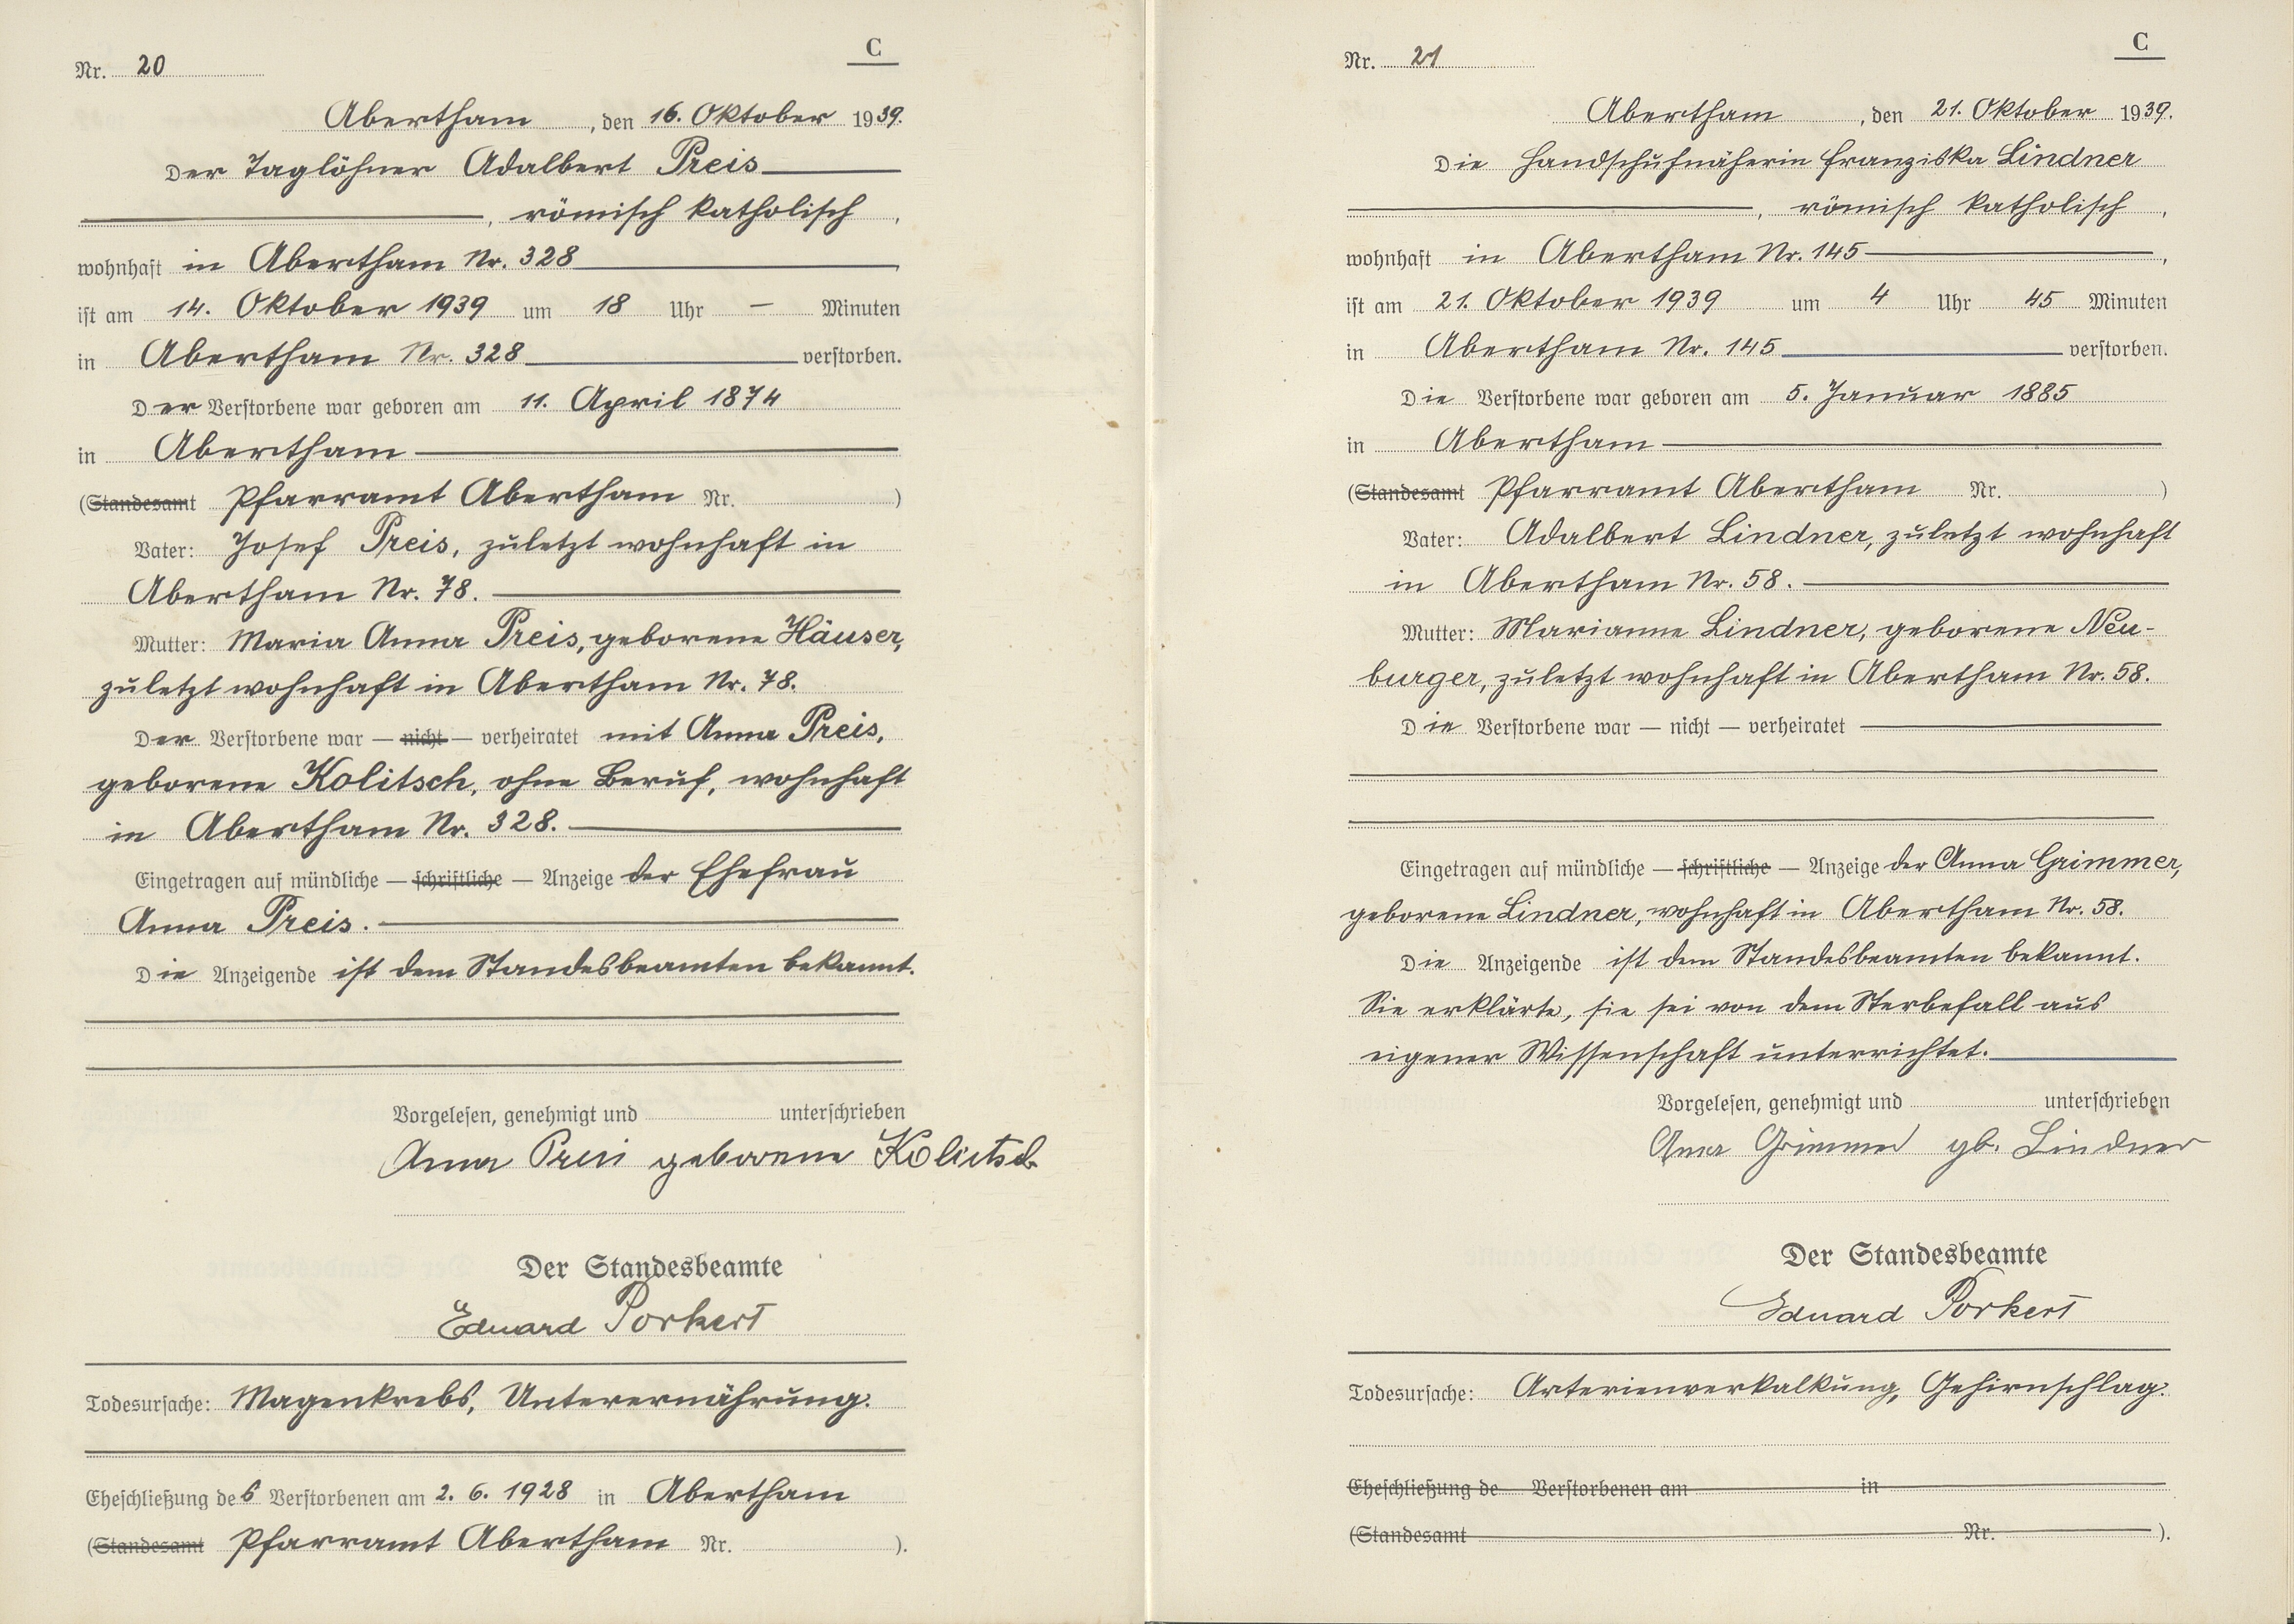 C
Nr. 20
Abertham, den 16. Oktober 1939.
Der Taglöhner Adalbert Preis
, römisch katholisch,
wohnhaft in Abertham Nr. 328
ist am 14. Oktober 1939 um 18 Uhr — Minuten
in Abertham Nr. 328 verstorben.
Der Verstorbene war geboren am 11. April 1874
in Abertham
(Standesamt Pfarramt Abertham Nr. )
Vater: Josef Preis, zuletzt wohnhaft in
Abertham Nr. 78.
Mutter: Maria Anna Preis, geborene Häuser,
zuletzt wohnhaft in Abertham Nr. 78.
Der Verstorbene war — nicht — verheiratet mit Anna Preis,
geborene Kolitsch, ohne Beruf, wohnhaft
in Abertham Nr. 328.
Eingetragen auf mündliche — schriftliche — Anzeige der Ehefrau
Anna Preis.
Die Anzeigende ist dem Standesbeamten bekannt.
Vorgelesen, genehmigt und unterschrieben
Anna Preis geborene Kolitsch
Der Standesbeamte
Eduard Porkert
Todesursache: Magenkrebs, Unterernährung.
Eheschließung des Verstorbenen am 2. 6. 1928 in Abertham
(Standesamt Pfarramt Abertham Nr. ).
C
Nr. 21
Abertham, den 21. Oktober 1939.
Die Handschuhnäherin Franziska Lindner
, römisch katholisch,
wohnhaft in Abertham Nr. 145,
ist am 21. Oktober 1939 um 4 Uhr 45 Minuten
in Abertham Nr. 145 verstorben.
Die Verstorbene war geboren am 5. Januar 1885
in Abertham
(Standesamt Pfarramt Abertham Nr. )
Vater: Adalbert Lindner, zuletzt wohnhaft
in Abertham Nr. 58.
Mutter: Marianne Lindner, geborene Neu-
burger, zuletzt wohnhaft in Abertham Nr. 58.
Die Verstorbene war — nicht — verheiratet
Eingetragen auf mündliche — schriftliche — Anzeige der Anna Grimmer,
geborene Lindner, wohnhaft in Abertham Nr. 58.
Die Anzeigende ist dem Standesbeamten bekannt.
Sie erklärte, sie sei von dem Sterbefall aus
eigener Wissenschaft unterrichtet.
Vorgelesen, genehmigt und unterschrieben
Anna Grimmer gb. Lindner
Der Standesbeamte
Eduard Porkert
Todesursache: Arterienverkalkung, Gehirnschlag.
Eheschließung de Verstorbenen am in
(Standesamt Nr. ).